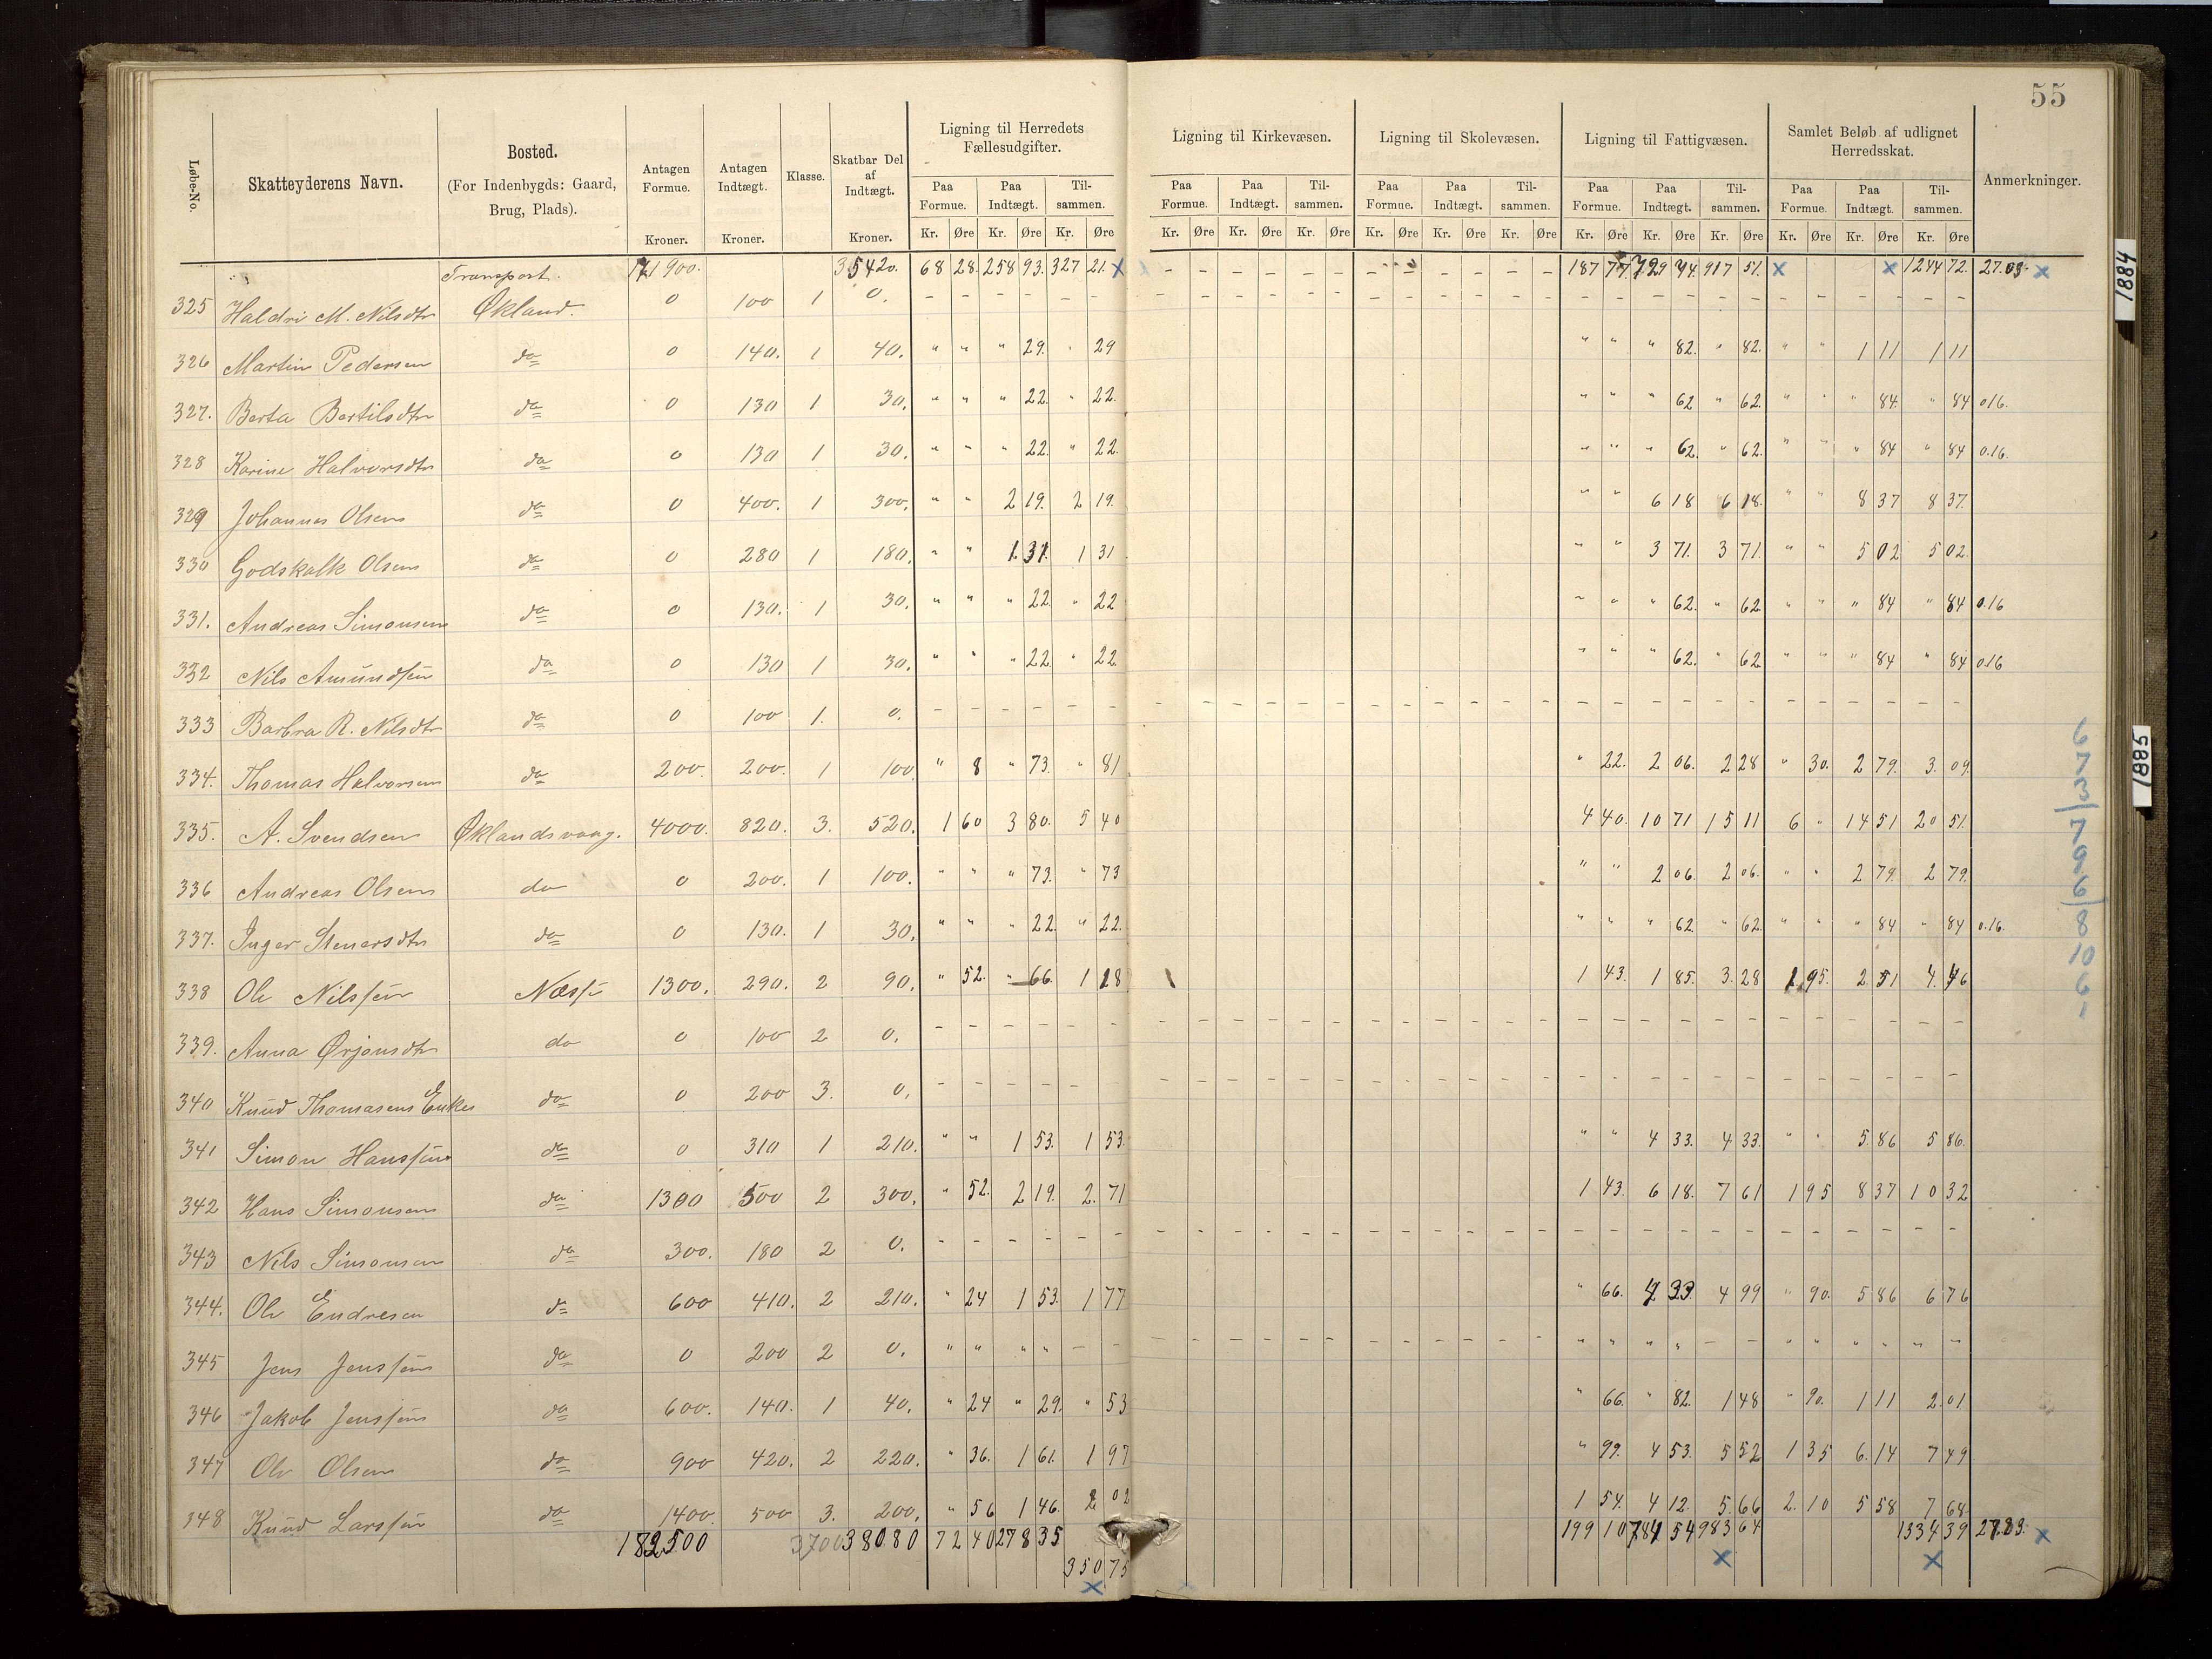 55
Løbe-No. Skatteyderens Navn. Bosted. (For Indenbygds: Gaard, Brug, Plads). Antagen Formue. Kroner. Antagen Indtægt. Kroner. Klasse. Skatbar Del af Indtægt. Kroner. Ligning til Herredets Fællesudgifter. Ligning til Kirkevæsen. Ligning til Skolevæsen. Ligning til Fattigvæsen. Samlet Beløb af udlignet Herredsskat. Anmerkninger.
Paa Formue. Paa Indtægt. Til- sammen. Paa Formue. Paa Indtægt. Til- sammen. Paa Formue. Paa Indtægt. Til- sammen. Paa Formue. Paa Indtægt. Til- sammen. Paa Formue. Paa Indtægt. Til- sammen.
Kr. Øre Kr. Øre Kr. Øre Kr. Øre Kr. Øre Kr. Øre Kr. Øre Kr. Øre Kr. Øre Kr. Øre Kr. Øre Kr. Øre Kr. Øre Kr. Øre Kr. Øre
Transport. 171900. 35420. 68 28. 258 93. 327 21. x 187 77. 729 74. 917 51. x x 1244 72. 27.03 x
325 Haldri M. Nilsdtr Økland. 0 100 1 0. - - - - - -
326 Martin Pedersen do 0 140. 1 40. " " " 29. " 29 " " " 82. " 82. " " 1 11 1 11
327. Berta Bertilsdtr do 0 130 1 30. " " " 22. " 22. " " " 62 " 62. " " " 84. " 84 0.16.
328 Karine Halvorsdtr do 0 130 1 30. " " " 22. " 22. " " " 62. " 62. " " " 84 " 84 0.16.
329 Johannes Olsen do 0 400. 1 300. " " 2 19. 2 19. " " 6 18 6 18. " " 8 37 8 37.
330 Godskalk Olsen do 0 280 1 180. " " 1. 31. 1 31 " " 3 71. 3 71. " " 5 02 5 02.
331. Andreas Simonsen do 0 130. 1 30. " " " 22. " 22 " " " 62. " 62 " " " 84 " 84 0.16
332 Nils Amundsen do 0 130 1 30. " " " 22. " 22. " " " 62. " 62 " " " 84 " 84 0.16
333 Barbra R. Nilsdtr do 0 100 1. 0. - - - - - -
334. Thomas Halvorsen do 200. 200. 1 100 " 8 " 73. " 81 " 22. 2 06. 2 28 " 30. 2 79. 3. 09.
335. A. Svendsen Øklandsvaag. 4000. 820. 3. 520. 1 60 3 80. 5 40 4 40. 10 71 15 11 6 " 14 51 20 51.
336 Andreas Olsen do 0 200. 1 100. " " " 73. " 73 " " 2 06. 2 06. " " 2 79. 2 79.
337. Inger Stenersdtr do 0 130. 1 30. " " " 22. " 22. " " " 62. " 62. " " " 84 " 84 0.16.
338 Ole Nilsen 1300. 290. 2 90. " 52. " 66. 1 18 1 43. 1 85. 3. 28 1 95. 2 51 4. 46
339. Anna Ørjansdtr do 0 100 2 0. - - - - - -
340 Knud Thomasens Enke do 0 200 3. 0. - - - - - -
341 Simon Hanssen do 0 310 1 210. " " 1 53. 1 53. " " 4 33. 4 33. " " 5. 86 5 86.
342 Hans Simonsen do 1300 500 2 300. " 52. 2 19. 2. 71 1 43. 6 18. 7 61 1 95 8 37 10 32
343 Nils Simonsen do 300. 180 2 0. - - - - - -
344. Ole Endresen do 600 410. 2 210. " 24 1 53. 1 77 " 66. 4 33 4 99 " 90. 5 86 6 76
345 Jens Jenssen do 0 200 2 0. " " " " - -
346 Jakob Jenssen do 600. 140. 1 40. " 24 " 29. " 53 " 66. " 82. 1 48 " 90. 1 11 2. 01
347 Ole Olsen do 900 420. 2 220. " 36. 1 61. 1 97 " 99. 4 53. 5 52 1 35 6. 14 7 49
348 Knud Larssen do 1400. 500 3. 200. " 56 1 46. 2 02 1 54. 4 12. 5. 66 2. 10 5 58 7 68.
182500 3700 38080 72 40 278 35 199 10 784 54 983 64 1334 39 27.83. x
350 75
x x x
1884
1885